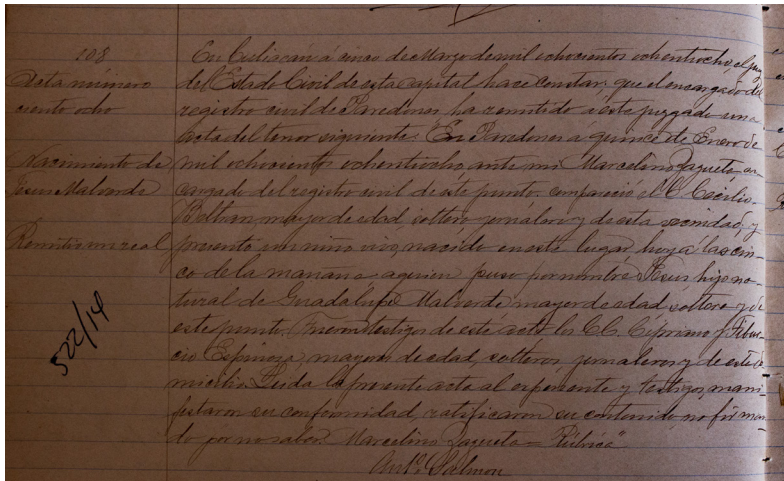 108
Acta número
ciento ocho
Nacimiento de
Jesus Malverde
Remitió un real
522/14
En Culiacan á cinco de Marzo de mil ochocientos ochentiocho, el juez
del Estado Civil de esta capital hace constar: que el encargado del
registro civil de Paredones ha remitido á este juzgado una
acta del tenor siguiente: En Paredones á quince de Enero de
mil ochocientos ochentiocho, ante mi Marcelino Zazueta en-
cargado del registro civil de este punto, compareció el C. Cecilio
Beltran, mayor de edad, soltero, jornalero y de esta vecindad, y
presentó un niño vivo, nacido en este lugar hoy a las cin-
co de la mañana a quien puso por nombre Jesus hijo na-
tural de Guadalupe Malverde mayor de edad soltera y de
este punto. Fueron testigos de este acto los C.C. Cipriano y Tibur-
cio Espinoza, mayores de edad, solteros, jornaleros y de este do-
micilio. Leida la presente acta al exponente y testigos, mani-
festaron su conformidad, ratificaron su contenido no firman-
do por no saber. Marcelino Zazueta = Rúbrica"
Anto. Salmon